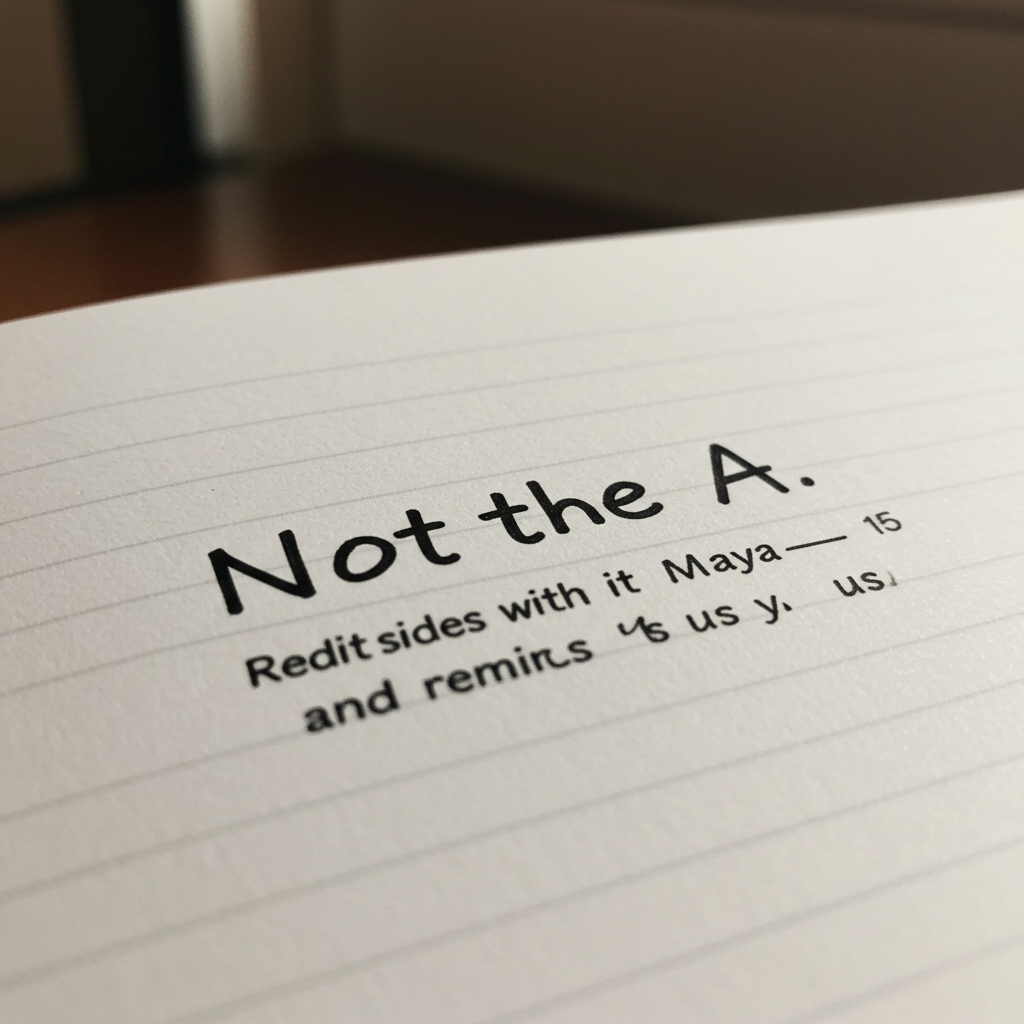 Not the A.
Redit sides with it Maya— 15
and us y. us